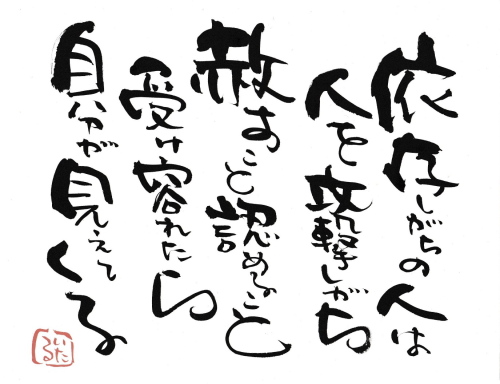 依存しがちの人は
人を攻撃しがち
赦すこと認めること
受け容れたら
自分が見えてくる
いたる